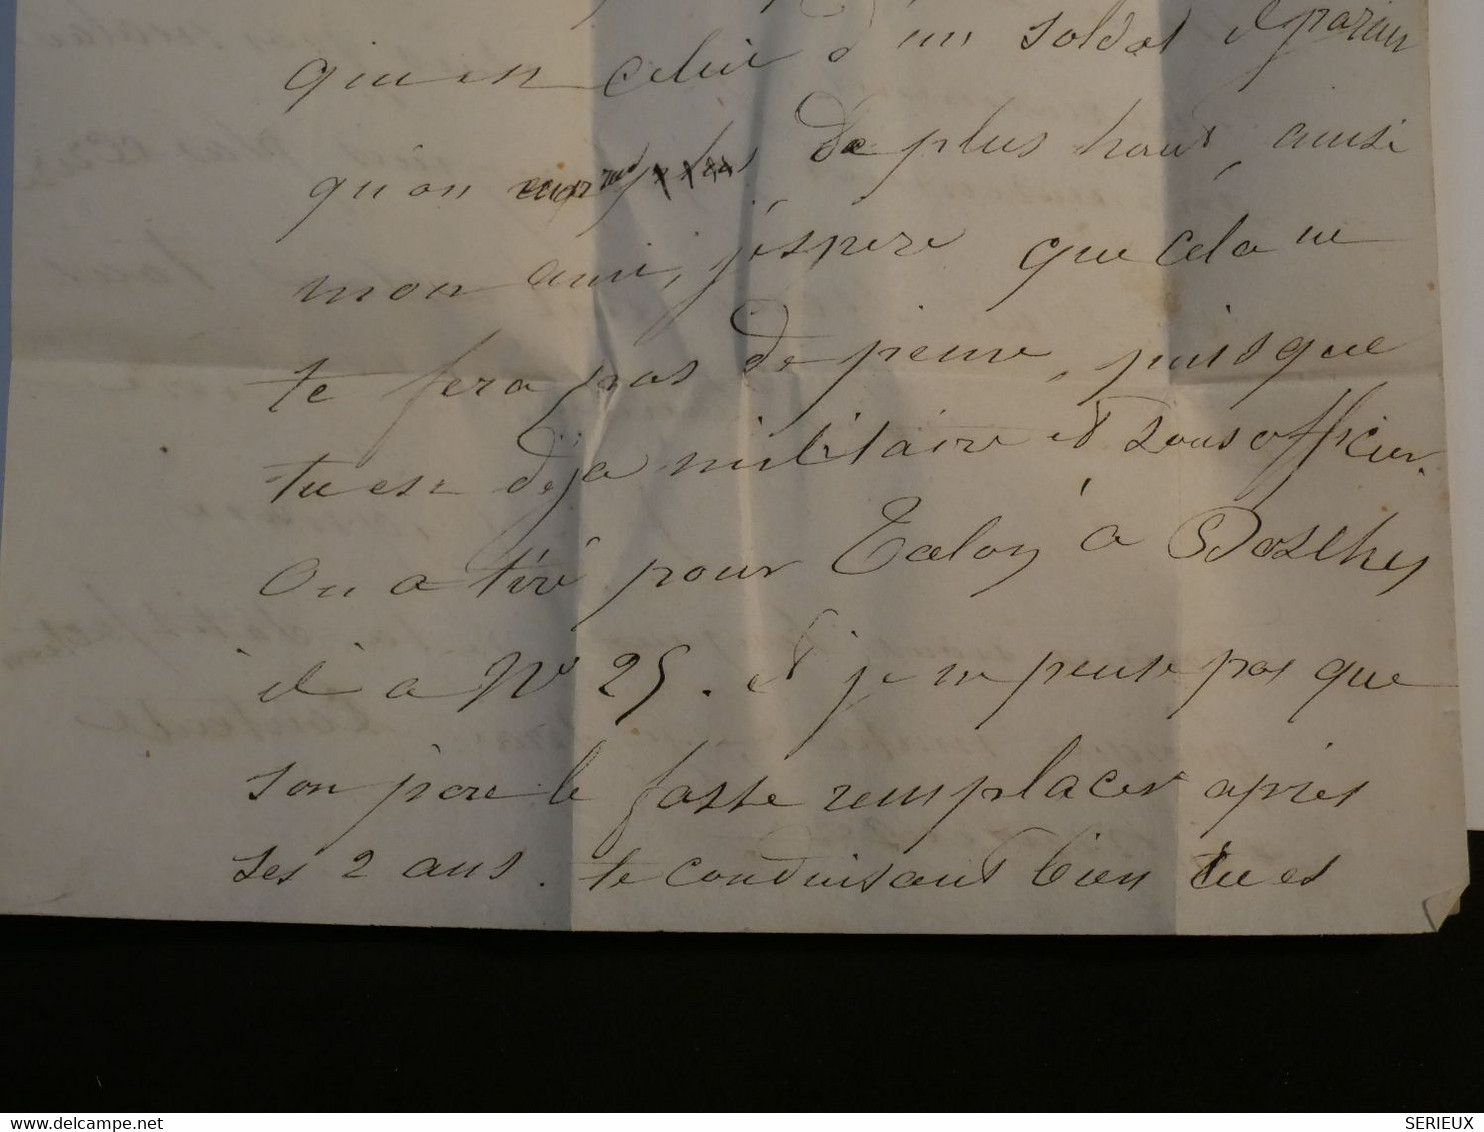 qu'en celui d'un soldat et parini
qu'on de plus haut, ainsi
mon ami, j'espere que cela ne
te fera pas de peine, puisque
tu es déja militaire et sous officier.
On a tiré pour Talon à
il a No 25. et je ne pense pas que
son pere le fasse remplacer apres
ses 2 ans. te conduisant bien tu es
delcampe.net
SERIEUX